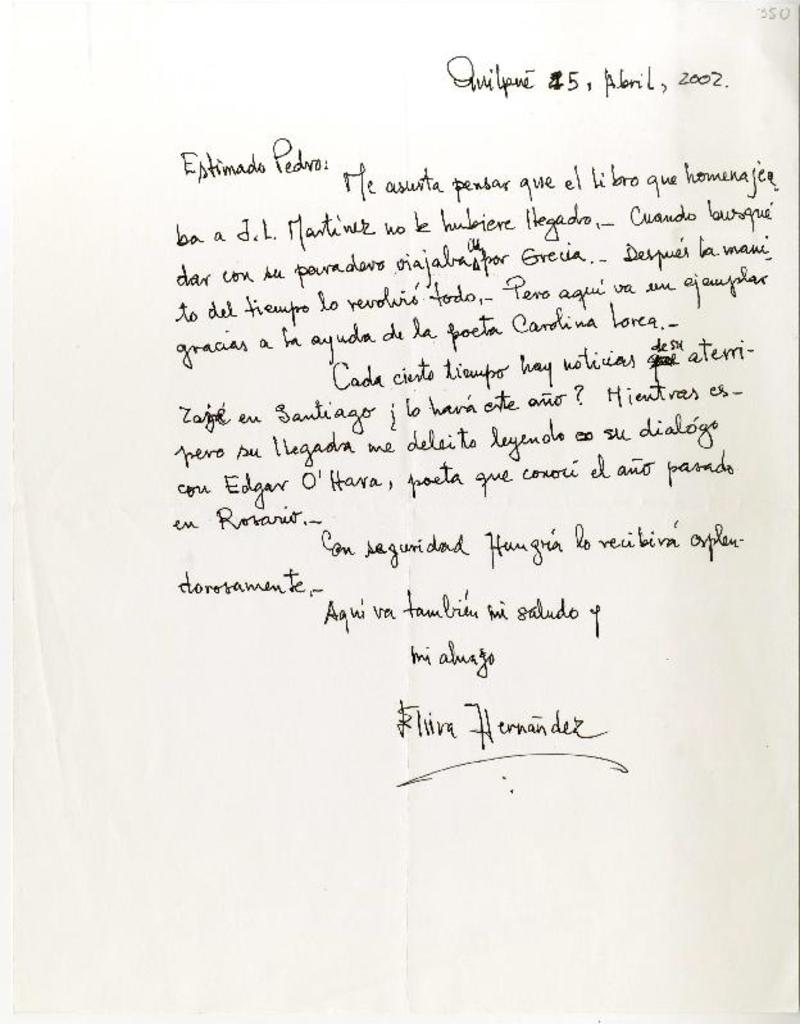 350
Quilpué 25, Abril, 2002.
Estimado Pedro:
Me asusta pensar que el libro que homenajea
ba a J.L. Martínez no le hubiere llegado.—Cuando busqué
dar con su paradero viajaba Ud. por Grecia.—Después la mani
to del tiempo lo revolvió todo.—Pero aquí va un ejemplar
gracias a la ayuda de la poeta Carolina Lorca.—
Cada cierto tiempo hay noticias de su aterri-
zaje en Santiago ¿lo hará este año? Mientras es-
pero su llegada me deleito leyendo su dialógo
con Edgar O'Hara, poeta que conocí el año pasado
en Rosario.—
Con seguridad Hungría lo recibirá esplen-
dorosamente.—
Aquí va también mi saludo y
mi abrazo
Elvira Hernández